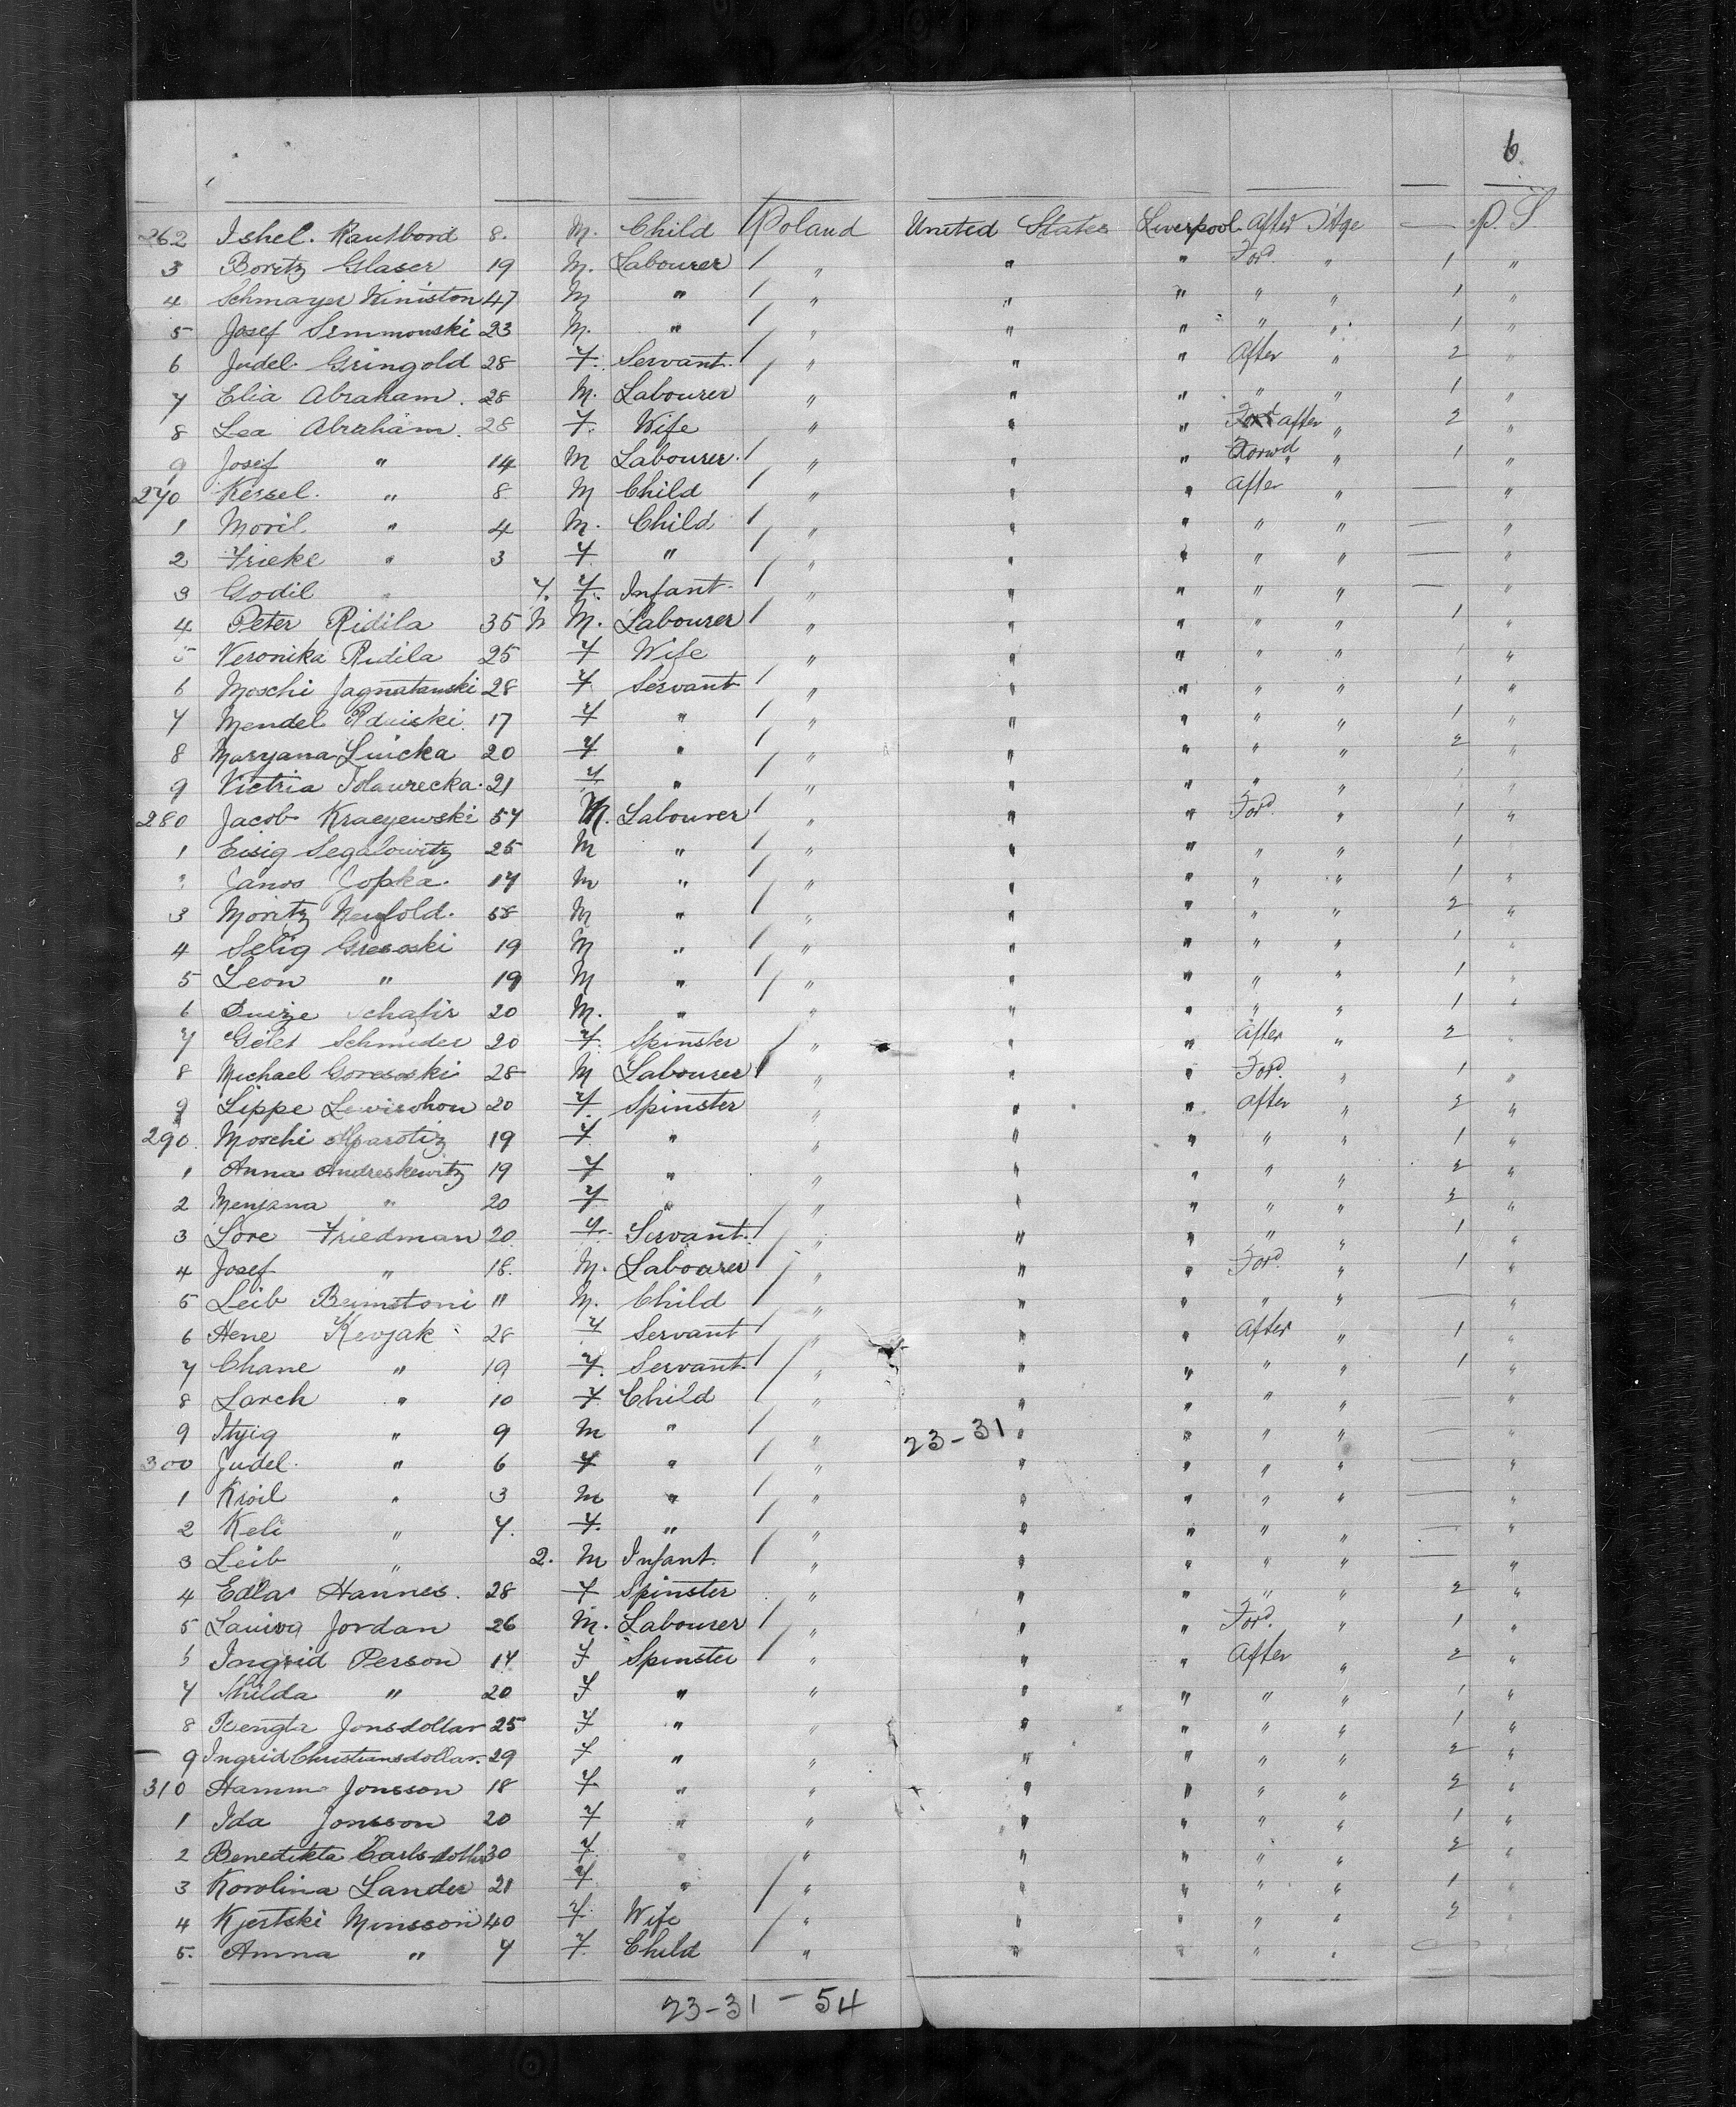 6
262 Ishel. Rautbord 8. M. Child Poland United States Liverpool After Stge — P. S
3 Boritz Glaser 19 M. Labourer / " " " Ford. " 1 "
4 Schmayer Winiston 47 M " / " " " " " 1 "
5 Josef Semmouski 23 M. " / " " " " " 1 "
6 Judel Gringold 28 F. Servant. / " " " After " 2 "
7 Elia Abraham. 28 M. Labourer " " " " " 1 "
8 Lea Abraham. 28 F. Wife " " " after " 2 "
9 Josef " 14 M Labourer. / " " " Forwd " 1 "
270 Kessel. " 8 M Child / " " " After " — "
1 Moril " 4 M. Child / " " " " " — "
2 Frieke " 3 F " / " " " " " — "
3 Godil " 7. F. Infant. / " " " " " — "
4 Peter Ridila 35 M. Labourer / " " " " " 1 "
5 Veronika Ridila 25 F Wife " " " " " 1 "
6 Moschi Jagnatauski 28 F Servant / " " " " " 1 "
7 Mendel 17 F " / " " " " " 1 "
8 Maryana Luicka 20 F " / " " " " " 2 "
9 Victria 21 F " / " " " " " 1 "
280 Jacob Kraeyewski 57 M. Labourer / " " " Ford. " 1 "
1 Eisig Segalowitz 25 M " / " " " " " 1
Janos Copka. 17 M " / " " " " " 1 "
3 Moritz 58 M " / " " " " " 2 "
4 Selig Gresoski 19 M " / " " " " " 1 "
5 Leon " 19 M " / " " " " " 1 "
6 Schafir 20 M. " " " " " " 1 "
7 Schmider 20 F. Spinster / " " " After " 2 "
8 Michael Goresoski 28 M Labourer / " " " Ford. " 1 "
9 Lippe Lewisohon 20 F. Spinster " " " After " 2 "
290. Moschi 19 F. " " " " " " 1 "
1 Anna Andreskewitz 19 F " " " " " " 2 "
2 Menjana " 20 F " / " " " " " 2 "
3 Lore Friedman 20 F. Servant. / " " " " " 1 "
4 Josef " 18. M. Labourer / " " " Ford. " 1 "
5 Leib Bernstoni 11 M. Child / " " " " " — "
6 Hene Kevjak 28 F Servant / " " " After " 1 "
7 Chane " 19 F. Servant. / " " " " " 1 "
8 Sarch " 10 F Child / " " " " " — "
9 Ityig " 9 M " / " 23-31 " " " " — "
300 Judel. " 6 F " / " " " " " — "
1 Kroil " 3 M " / " " " " " — "
2 Keli " 7. F. " / " " " " " — "
3 Leib " 2. M Infant. / " " " " " — "
4 Edla Hannes. 28 F Spinster " " " " " 2 "
5 Jordan 26 M. Labourer / " " " Ford. " 1 "
6 Ingrid Person 17 F Spinster / " " " After " 2 "
7 Thilda " 20 F " " " " " " 1 "
8 Bengta Jonsdollar 25 F " " " " " " 1 "
9 Ingrid Christiansdollar. 29 F " " " " " " 2 "
310 Hamm Jonsson 18 F " " " " " " 2 "
1 Ida Jonsson 20 F " " " " " " 1 "
2 Benedikta Carlsdotter 30 F " / " " " " " 2 "
3 Korolina Lander 21 F " / " " " " " 1 "
4 Kjertski Monsson 40 F. Wife / " " " " " 2 "
5. Amna " 7 F. Child / " " " " " —
23-31-54